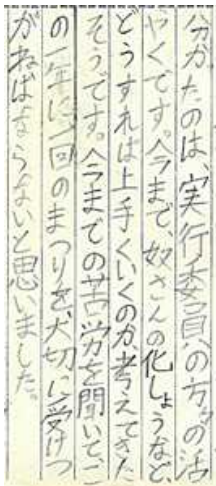 分かたのは、実行委員の方々の活
やくです。今まで、奴さんの化しょうなど、
どうすれば上手くいくのか考えてきた
そうです。今までの苦労を聞いてこ
の一年に一回のまつりを大切に受けつ
がねばならないと思いました。